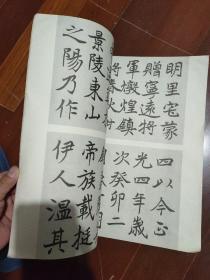 明里宅蒙
贈寧遠將
軍燉煌鎮
四以今正
光四年歲
次癸卯二
景陵東山
之陽乃作
帝族載挺
伊人溫其